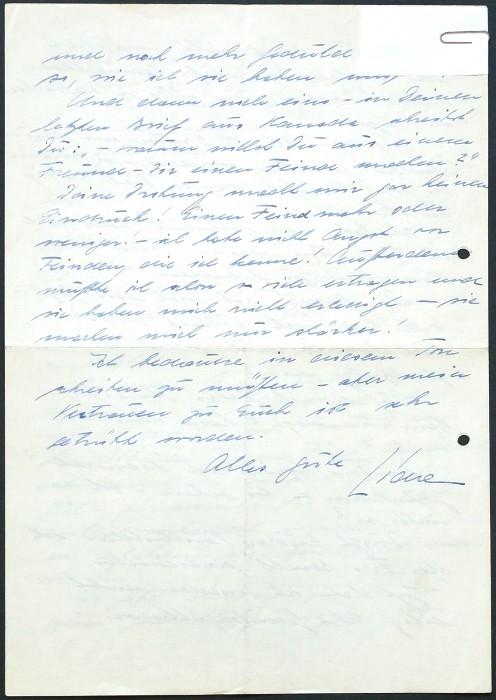 und noch mehr Geduld
so, wie ich sie haben muß
Und dann noch eins – in Deinem
letzten Brief aus Kanada schreibst
Du: „ – warum willst Du aus einem
Freund – Dir einen Feind machen?"
Deine Drohung macht mir gar keinen
Eindruck! Einen Feind mehr oder
weniger! – ich habe nicht Angst vor
Feinden, die ich kenne! Außerdem
mußte ich schon so viel ertragen und
sie haben mich nicht erledigt – sie
machen mich nur stärker!
Ich bedauere in diesem Ton
schreiben zu müßen – aber mein
Vertrauen zu Euch ist sehr
getrübt worden.
Alles gute